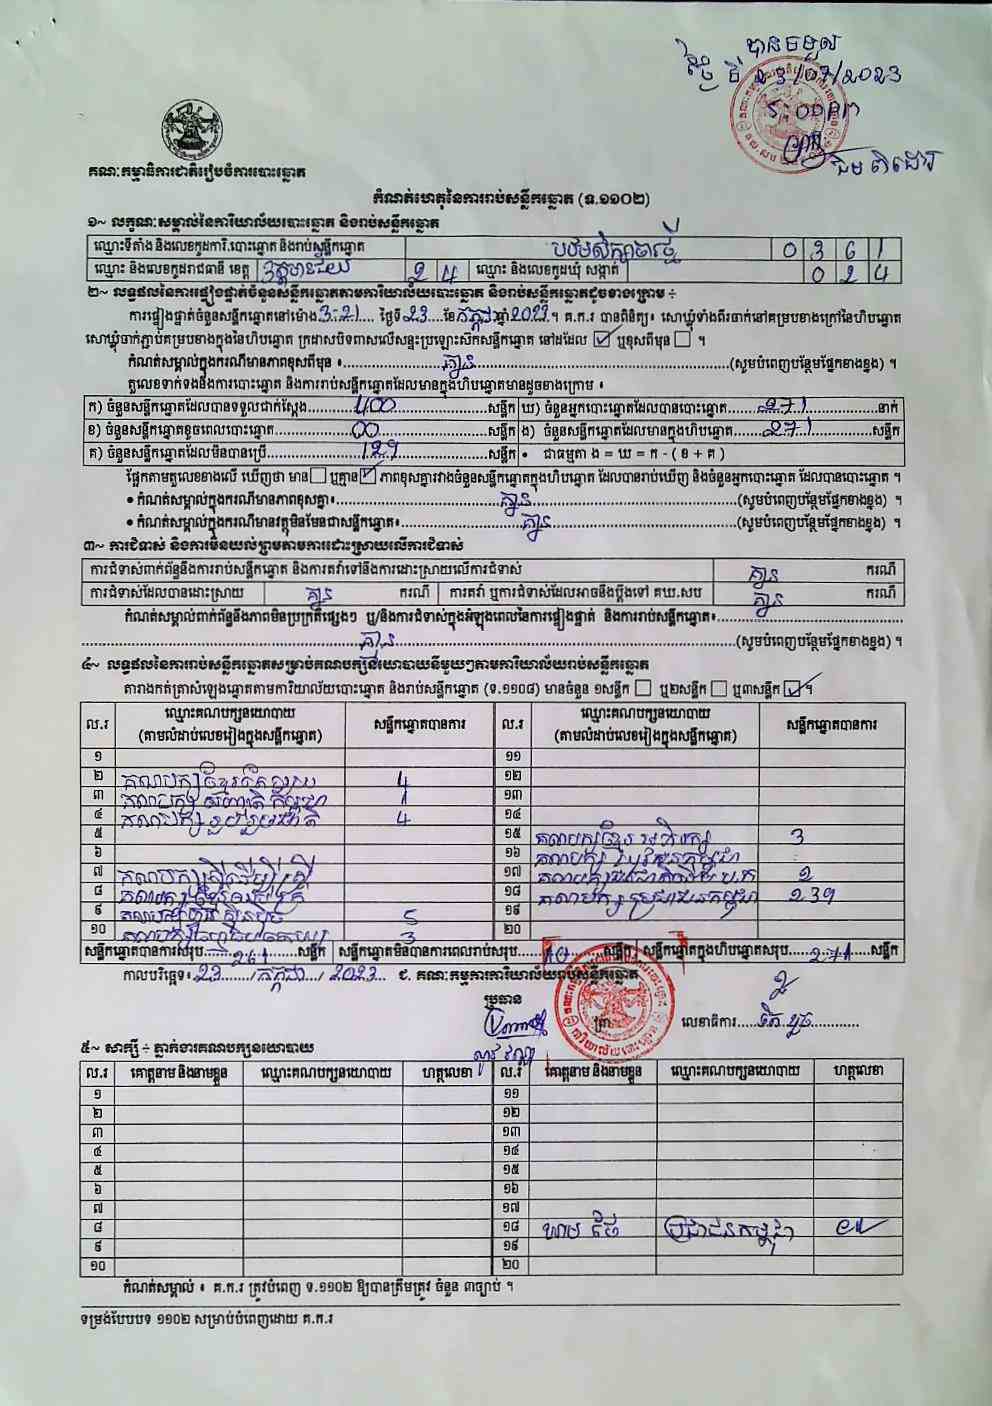 បានទទួល
ថ្ងៃ ទី 23/07/2023
គណៈកម្មាធិការជាតិរៀបចំការបោះឆ្នោត
កំណត់ហេតុនៃការរាប់សន្លឹកឆ្នោត (ទ.១១០២)
១~ លក្ខណៈសម្គាល់នៃការិយាល័យបោះឆ្នោត និងរាប់សន្លឹកឆ្នោត
ឈ្មោះទីតាំង និងលេខកូដការិ.បោះឆ្នោត និងរាប់សន្លឹកឆ្នោត បឋមសិក្សាចារថ្មី 0 3 6 1
ឈ្មោះ និងលេខកូដរាជធានី ខេត្ត ឧត្តរមានជ័យ 2 4 ឈ្មោះ និងលេខកូដឃុំ សង្កាត់ 0 2 4
២~ លទ្ធផលនៃការផ្ទៀងផ្ទាត់ចំនួនសន្លឹកឆ្នោតតាមការិយាល័យបោះឆ្នោត និងរាប់សន្លឹកឆ្នោតដូចខាងក្រោម ÷
ការផ្ទៀងផ្ទាត់ចំនួនសន្លឹកឆ្នោតនៅម៉ោង 3-21 ថ្ងៃទី 23 ខែ កក្កដា ឆ្នាំ 2023។ គ.ក.រ បានពិនិត្យ៖ សោឃ្លុំទាំងពីរចាក់នៅគម្របខាងក្រៅនៃហិបឆ្នោត
សោឃ្លុំចាក់ភ្ជាប់គម្របខាងក្នុងនៃហិបឆ្នោត ក្រដាសបិទពាសលើសន្ទះប្រឡោះស៊កសន្លឹកឆ្នោត នៅដដែល ☑ ឬខុសពីមុន ☐ ។
កំណត់សម្គាល់ក្នុងករណីមានភាពខុសពីមុន ៖ គ្មាន (សូមបំពេញបន្ថែមផ្នែកខាងខ្នង) ។
តួលេខទាក់ទងនឹងការបោះឆ្នោត និងការរាប់សន្លឹកឆ្នោតដែលមានក្នុងហិបឆ្នោតមានដូចខាងក្រោម ៖
ក) ចំនួនសន្លឹកឆ្នោតដែលបានទទួលជាក់ស្តែង 400 សន្លឹក ឃ) ចំនួនអ្នកបោះឆ្នោតដែលបានបោះឆ្នោត 271 នាក់
ខ) ចំនួនសន្លឹកឆ្នោតខូចពេលបោះឆ្នោត 00 សន្លឹក ង) ចំនួនសន្លឹកឆ្នោតដែលមានក្នុងហិបឆ្នោត 271 សន្លឹក
គ) ចំនួនសន្លឹកឆ្នោតដែលមិនបានប្រើ 129 សន្លឹក • ជាធម្មតា ង = ឃ = ក - ( ខ + គ )
ផ្អែកតាមតួលេខខាងលើ ឃើញថា មាន ☐ ឬគ្មាន ☑ ភាពខុសគ្នារវាងចំនួនសន្លឹកឆ្នោតក្នុងហិបឆ្នោត ដែលបានរាប់ឃើញ និងចំនួនអ្នកបោះឆ្នោត ដែលបានបោះឆ្នោត ។
• កំណត់សម្គាល់ក្នុងករណីមានភាពខុសគ្នា៖ គ្មាន (សូមបំពេញបន្ថែមផ្នែកខាងខ្នង) ។
• កំណត់សម្គាល់ក្នុងករណីមានវត្ថុមិនមែនជាសន្លឹកឆ្នោត៖ គ្មាន (សូមបំពេញបន្ថែមផ្នែកខាងខ្នង) ។
៣~ ការជំទាស់ និងការមិនយល់ព្រមតាមការដោះស្រាយលើការជំទាស់
ការជំទាស់ពាក់ព័ន្ធនឹងការរាប់សន្លឹកឆ្នោត និងការតវ៉ាទៅនឹងការដោះស្រាយលើការជំទាស់ គ្មាន ករណី
ការជំទាស់ដែលបានដោះស្រាយ គ្មាន ករណី ការតវ៉ា ឬការជំទាស់ដែលអាចនឹងប្តឹងទៅ គឃ.សប គ្មាន ករណី
កំណត់សម្គាល់ពាក់ព័ន្ធនឹងភាពមិនប្រក្រតីផ្សេងៗ ឬ/និងការជំទាស់ក្នុងអំឡុងពេលនៃការផ្ទៀងផ្ទាត់ និងការរាប់សន្លឹកឆ្នោត៖
គ្មាន (សូមបំពេញបន្ថែមផ្នែកខាងខ្នង) ។
៤~ លទ្ធផលនៃការរាប់សន្លឹកឆ្នោតសម្រាប់គណបក្សនយោបាយនីមួយៗតាមការិយាល័យរាប់សន្លឹកឆ្នោត
តារាងកត់ត្រាសំឡេងឆ្នោតតាមការិយាល័យបោះឆ្នោត និងរាប់សន្លឹកឆ្នោត (ទ.១១០៨) មានចំនួន ១សន្លឹក ☐ ឬ២សន្លឹក ☐ ឬ៣សន្លឹក ☑ ។
ល.រ ឈ្មោះគណបក្សនយោបាយ (តាមលំដាប់លេខរៀងក្នុងសន្លឹកឆ្នោត) សន្លឹកឆ្នោតបានការ ល.រ ឈ្មោះគណបក្សនយោបាយ (តាមលំដាប់លេខរៀងក្នុងសន្លឹកឆ្នោត) សន្លឹកឆ្នោតបានការ
១ ១១
២ គណបក្ស 4 ១២
៣ គណបក្ស 1 ១៣
៤ គណបក្ស 4 ១៤
៥ ១៥ គណបក្សខ្មែរ 3
៦ ១៦ គណបក្ស
៧ គណបក្ស ១៧ គណបក្ស 2
៨ គណបក្ស ១៨ គណបក្សប្រជាជនកម្ពុជា 239
៩ គណបក្ស 5 ១៩
១០ គណបក្ស 3 ២០
សន្លឹកឆ្នោតបានការសរុប 261 សន្លឹក សន្លឹកឆ្នោតមិនបានការពេលរាប់សរុប 10 សន្លឹក សន្លឹកឆ្នោតក្នុងហិបឆ្នោតសរុប 271 សន្លឹក
កាលបរិច្ឆេទ៖ 23 / កក្កដា / 2023 ជ. គណៈកម្មការការិយាល័យរាប់សន្លឹកឆ្នោត
ប្រធាន ត្រា លេខាធិការ
៥~ សាក្សី ÷ ភ្នាក់ងារគណបក្សនយោបាយ
ល.រ គោត្តនាម និងនាមខ្លួន ឈ្មោះគណបក្សនយោបាយ ហត្ថលេខា ល.រ គោត្តនាម និងនាមខ្លួន ឈ្មោះគណបក្សនយោបាយ ហត្ថលេខា
១ ១១
២ ១២
៣ ១៣
៤ ១៤
៥ ១៥
៦ ១៦
៧ ១៧
៨ ១៨ ប្រជាជនកម្ពុជា
៩ ១៩
១០ ២០
កំណត់សម្គាល់ ៖ គ.ក.រ ត្រូវបំពេញ ទ.១១០២ ឱ្យបានត្រឹមត្រូវ ចំនួន ៣ច្បាប់ ។
ទម្រង់បែបបទ ១១០២ សម្រាប់បំពេញដោយ គ.ក.រ